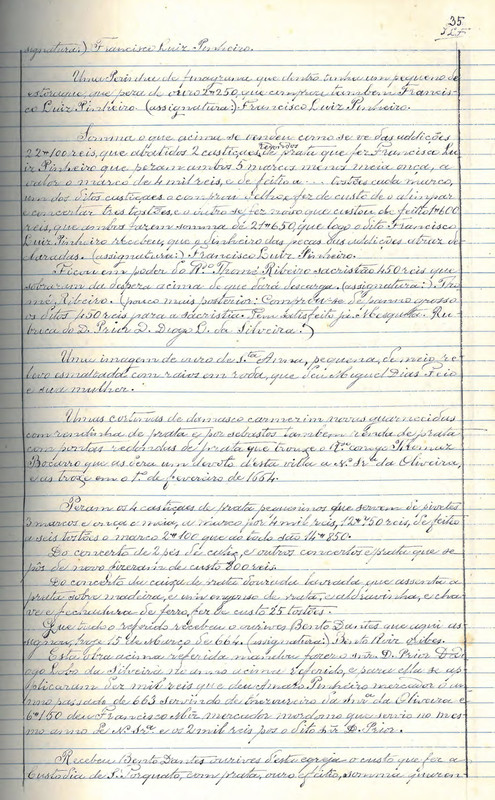 35
signatura:) Francisco Luiz Pinheiro.
Uma de que dentro tinha um pequeno de
que pera de ouro 2$250, que comprou tambem Francis-
co Luiz Pinheiro. (assignatura:) Francisco Luiz Pinheiro.
Somma o que acima se vendeu como se ve das addições
22$100 reis, que abatidos 2 castiçaes de prata que fez Francisco Lu-
iz Pinheiro que peram ambos 5 marcos menos meia onça, a
valor o marco de 4 mil reis, e de feitio a ... tostões cada marco,
um dos ditos castiçaes e fez de custo de o alimpar
e concertar tres tostões, e o outro se fez novo que custou de feitio 1$600
reis, que ambos fazem somma de 21$650, que logo o dito Francisco
Luiz Pinheiro recebeu, que o dinheiro das peças das addições atraz de-
claradas. (assignatura:) Francisco Luiz Pinheiro.
Ficou em poder do Thomé Ribeiro sacristão 450 reis que
sobraram da despeza acima de que dará descarga. (assignatura:) Tho-
mé Ribeiro. (pouco mais posterior: Comprou-se de panno grosso
os ditos 450 reis para a sacristia. Tem satisfeito Ru-
brica do D. Prior D. Diogo L. da Silveira.)
Uma imagem de ouro de Sta Anna, pequena, de meio re-
levo esmaltada com raios em roda, que deu Miguel Dias Feio
e sua mulher.
Umas cortinas de damasco carmezim novas guarnecidas
com rendinha de prata e por sobrastos tambem renda de prata
com redondas de prata que trouxe o conego Thomaz
Bocarro que as dera um devoto desta villa a N. Sra da Oliveira,
e as trouxe em 1º de fevereiro de 1664.
Peram os 4 castiçaes de prata pequeninos que servem de
3 marcos e onça e meia, a marco por 4 mil reis, 12$750 reis, de feitio
a seis tostões o marco 2$100 que ao todo são 14$850.
Do concerto de 2 pés de calix, e outros concertos e prata que se
pôs de novo fizeram de custo 800 reis.
Do concerto da caixa de prata dourada lavrada que assenta a
prata sobre madeira, e um engonso de prata, e aldravinha, e cha-
ve e fechadura de ferro, fez de custo 25 tostões.
Que tudo o referido recebeu o ourives Bento Dantes que aqui as-
signou, hoje 15 de Março de 664. (assignatura:) Bento
Esta obra acima referida mandou fazer o snr D. Prior Dio-
go Lobo da Silveira no anno acima referido, e para ella se ap-
plicaram dez mil reis que deu Pinheiro mercador o an-
no passado de 663 servindo de thesoureiro da Snra da Oliveira e
6$150 deu Francisco Miz mercador mordomo que servio no mes-
mo anno de N. Sra e os 2 mil reis pos o dito snr D. Prior.
Recebeu Bento Dantes ourives desta egreja o custo que fez a
Custodia de S. Torquato, com prata, ouro e feitio, somma quaren-